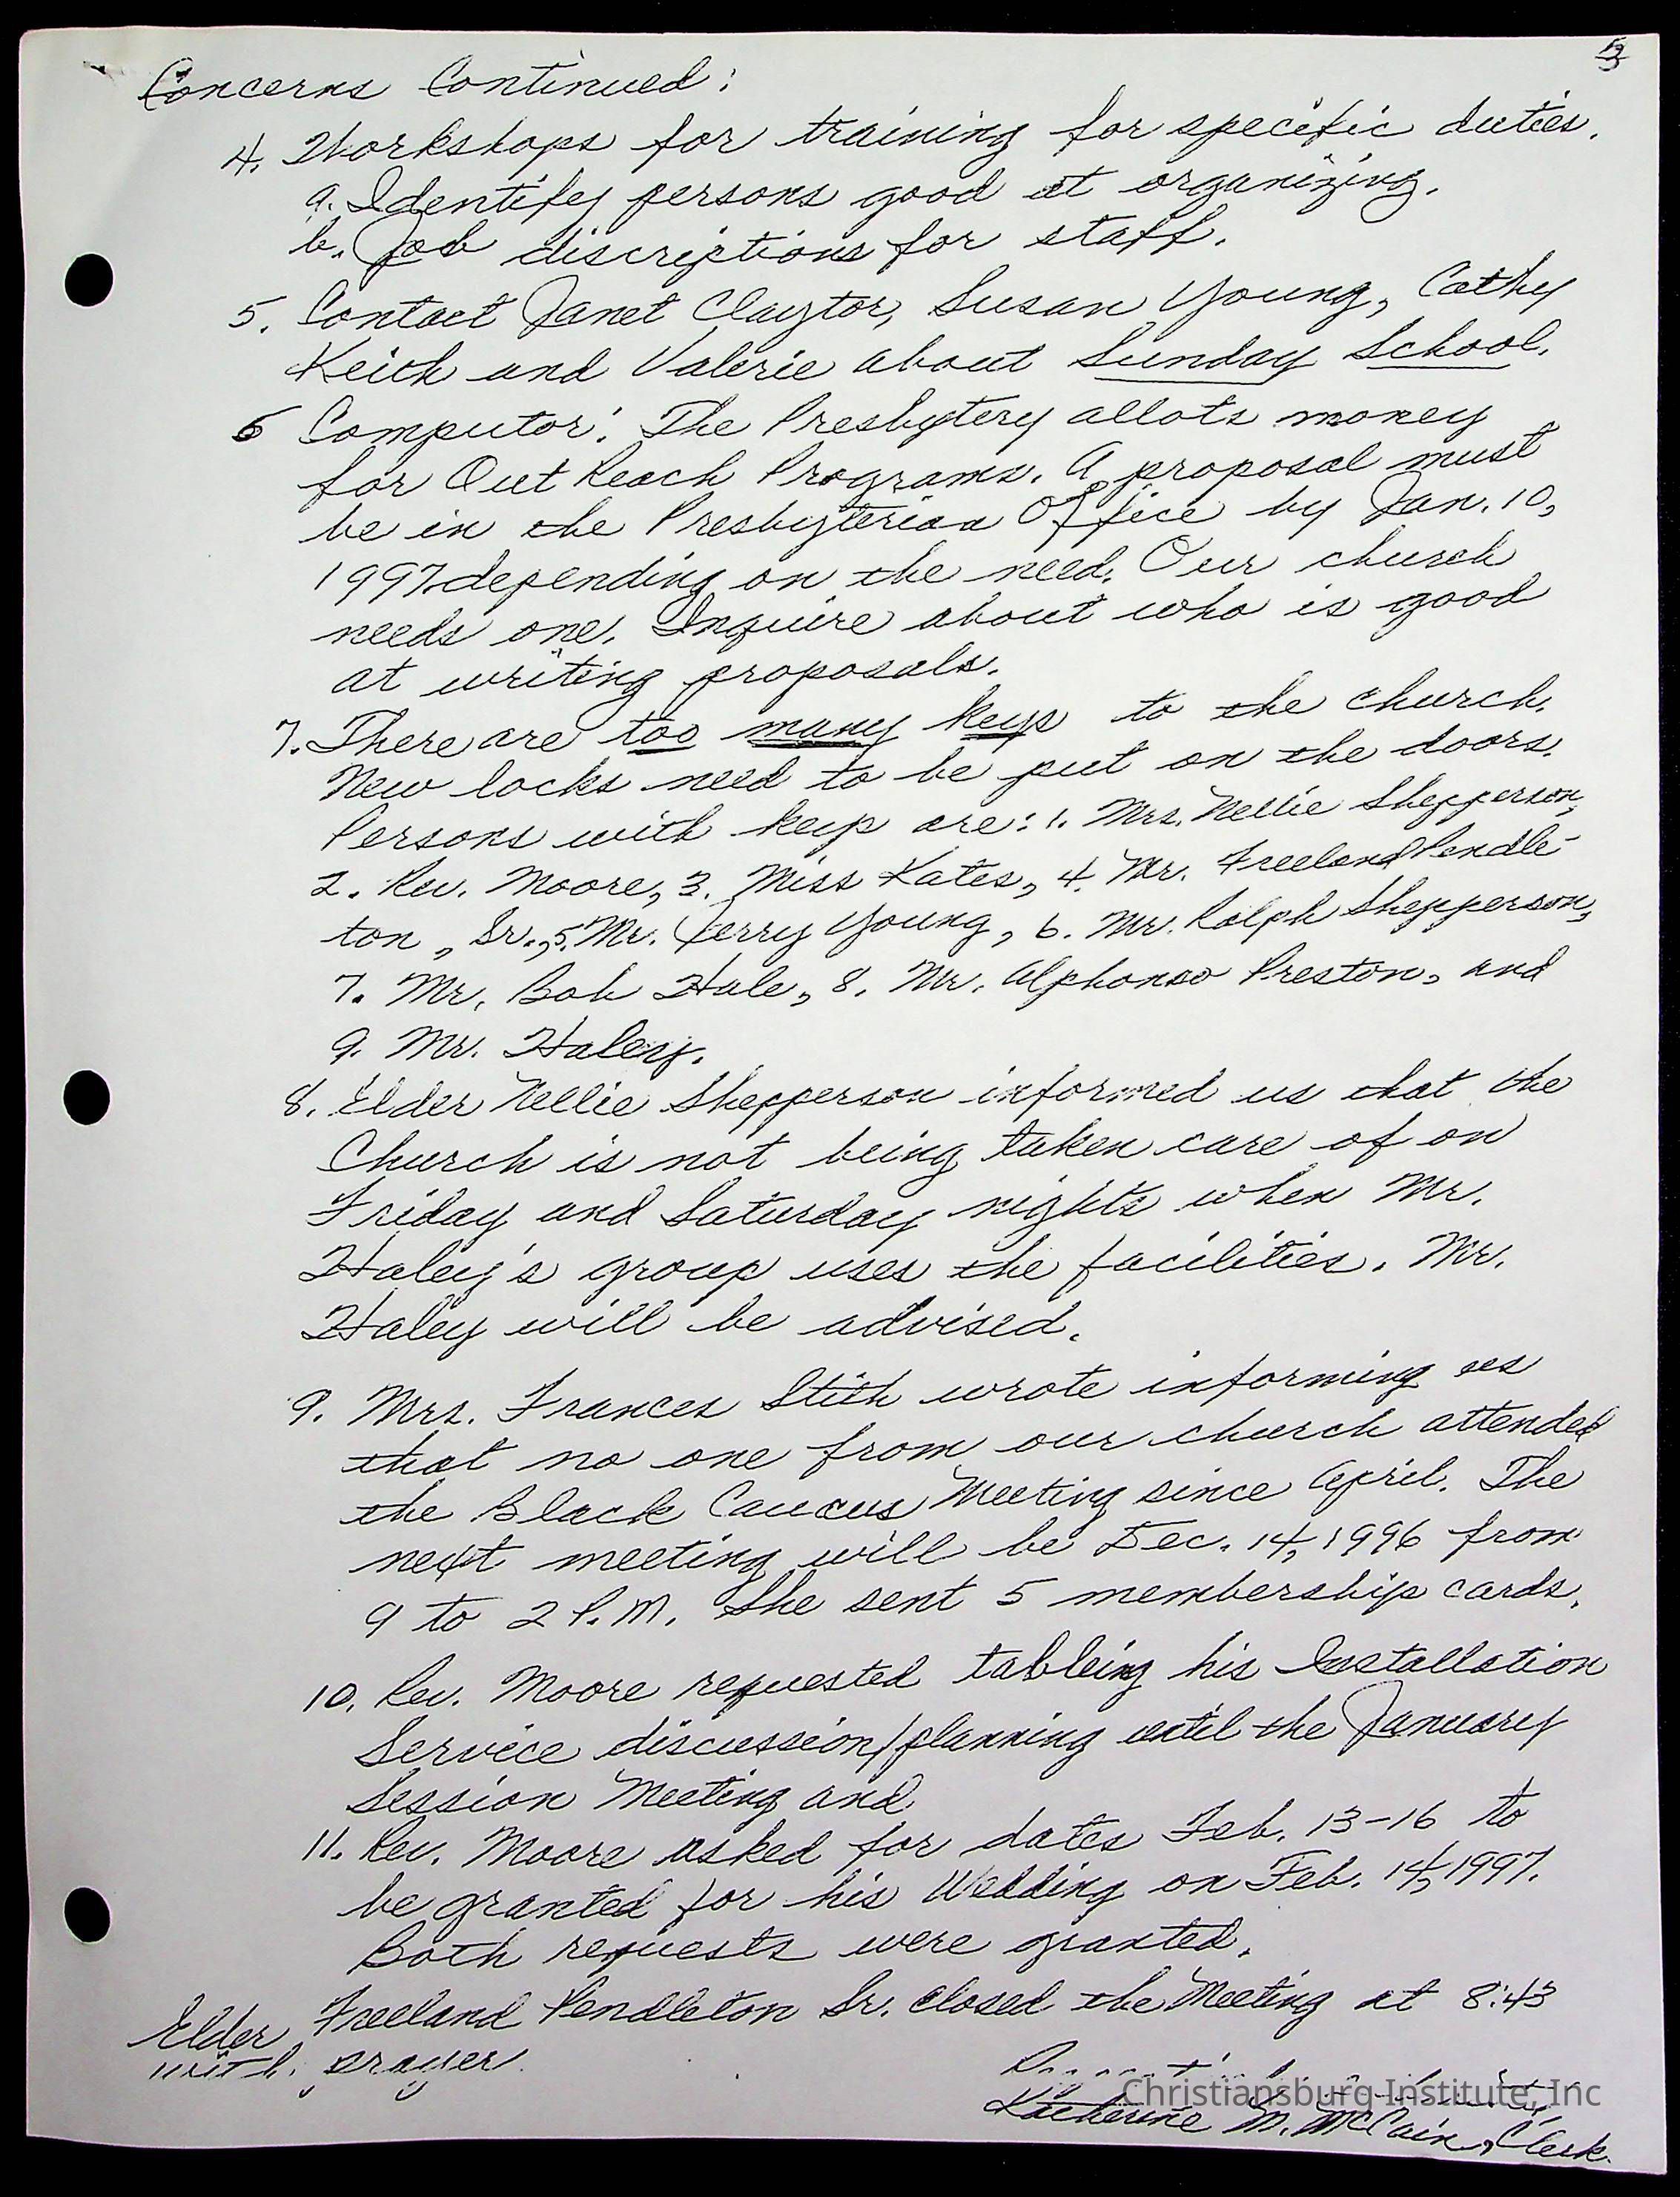 3
Concerns Continued:
4. Workshops for training for specific duties.
a. Identify persons good at organizing.
b. Job discriptions for staff.
5. Contact Janet Claytor, Susan Young, Cathy
Keith and Valerie about Sunday School.
6 Computor: The Presbytery allots money
for Out Reach Programs. A proposal must
be in the Presbyterian Office by Jan. 10,
1997 depending on the need. Our church
needs one. Inquire about who is good
at writing proposals.
7. There are too many keys to the church.
New locks need to be put on the doors.
Persons with keys are: 1. Mrs. Nellie Shepperson,
2. Rev. Moore, 3. Miss Kates, 4. Mr. Freeland Pendle-
ton, Sr., 5. Mr. Jerry Young, 6. Mr. Ralph Shepperson,
7. Mr. Bob Hale, 8. Mr. Alphonso Preston, and
9. Mr. Haley.
8. Elder Nellie Shepperson informed us that the
Church is not being taken care of on
Friday and Saturday nights when Mr.
Haley's group uses the facilities. Mr.
Haley will be advised.
9. Mrs. Frances Stith wrote informing us
that no one from our church attended
the Black Caucus Meeting since April. The
next meeting will be Dec. 14, 1996 from
9 to 2 P.M. She sent 5 membership cards.
10. Rev. Moore requested tableing his Installation
Service discussion/planning until the January
Session Meeting and
11. Rev. Moore asked for dates Feb. 13-16 to
be granted for his Wedding on Feb. 14, 1997.
Both requests were granted.
Elder Freeland Pendleton Sr. closed the Meeting at 8:43
with prayer.
Christiansburg Institute, Inc
Katherine M. McCain, Clerk.